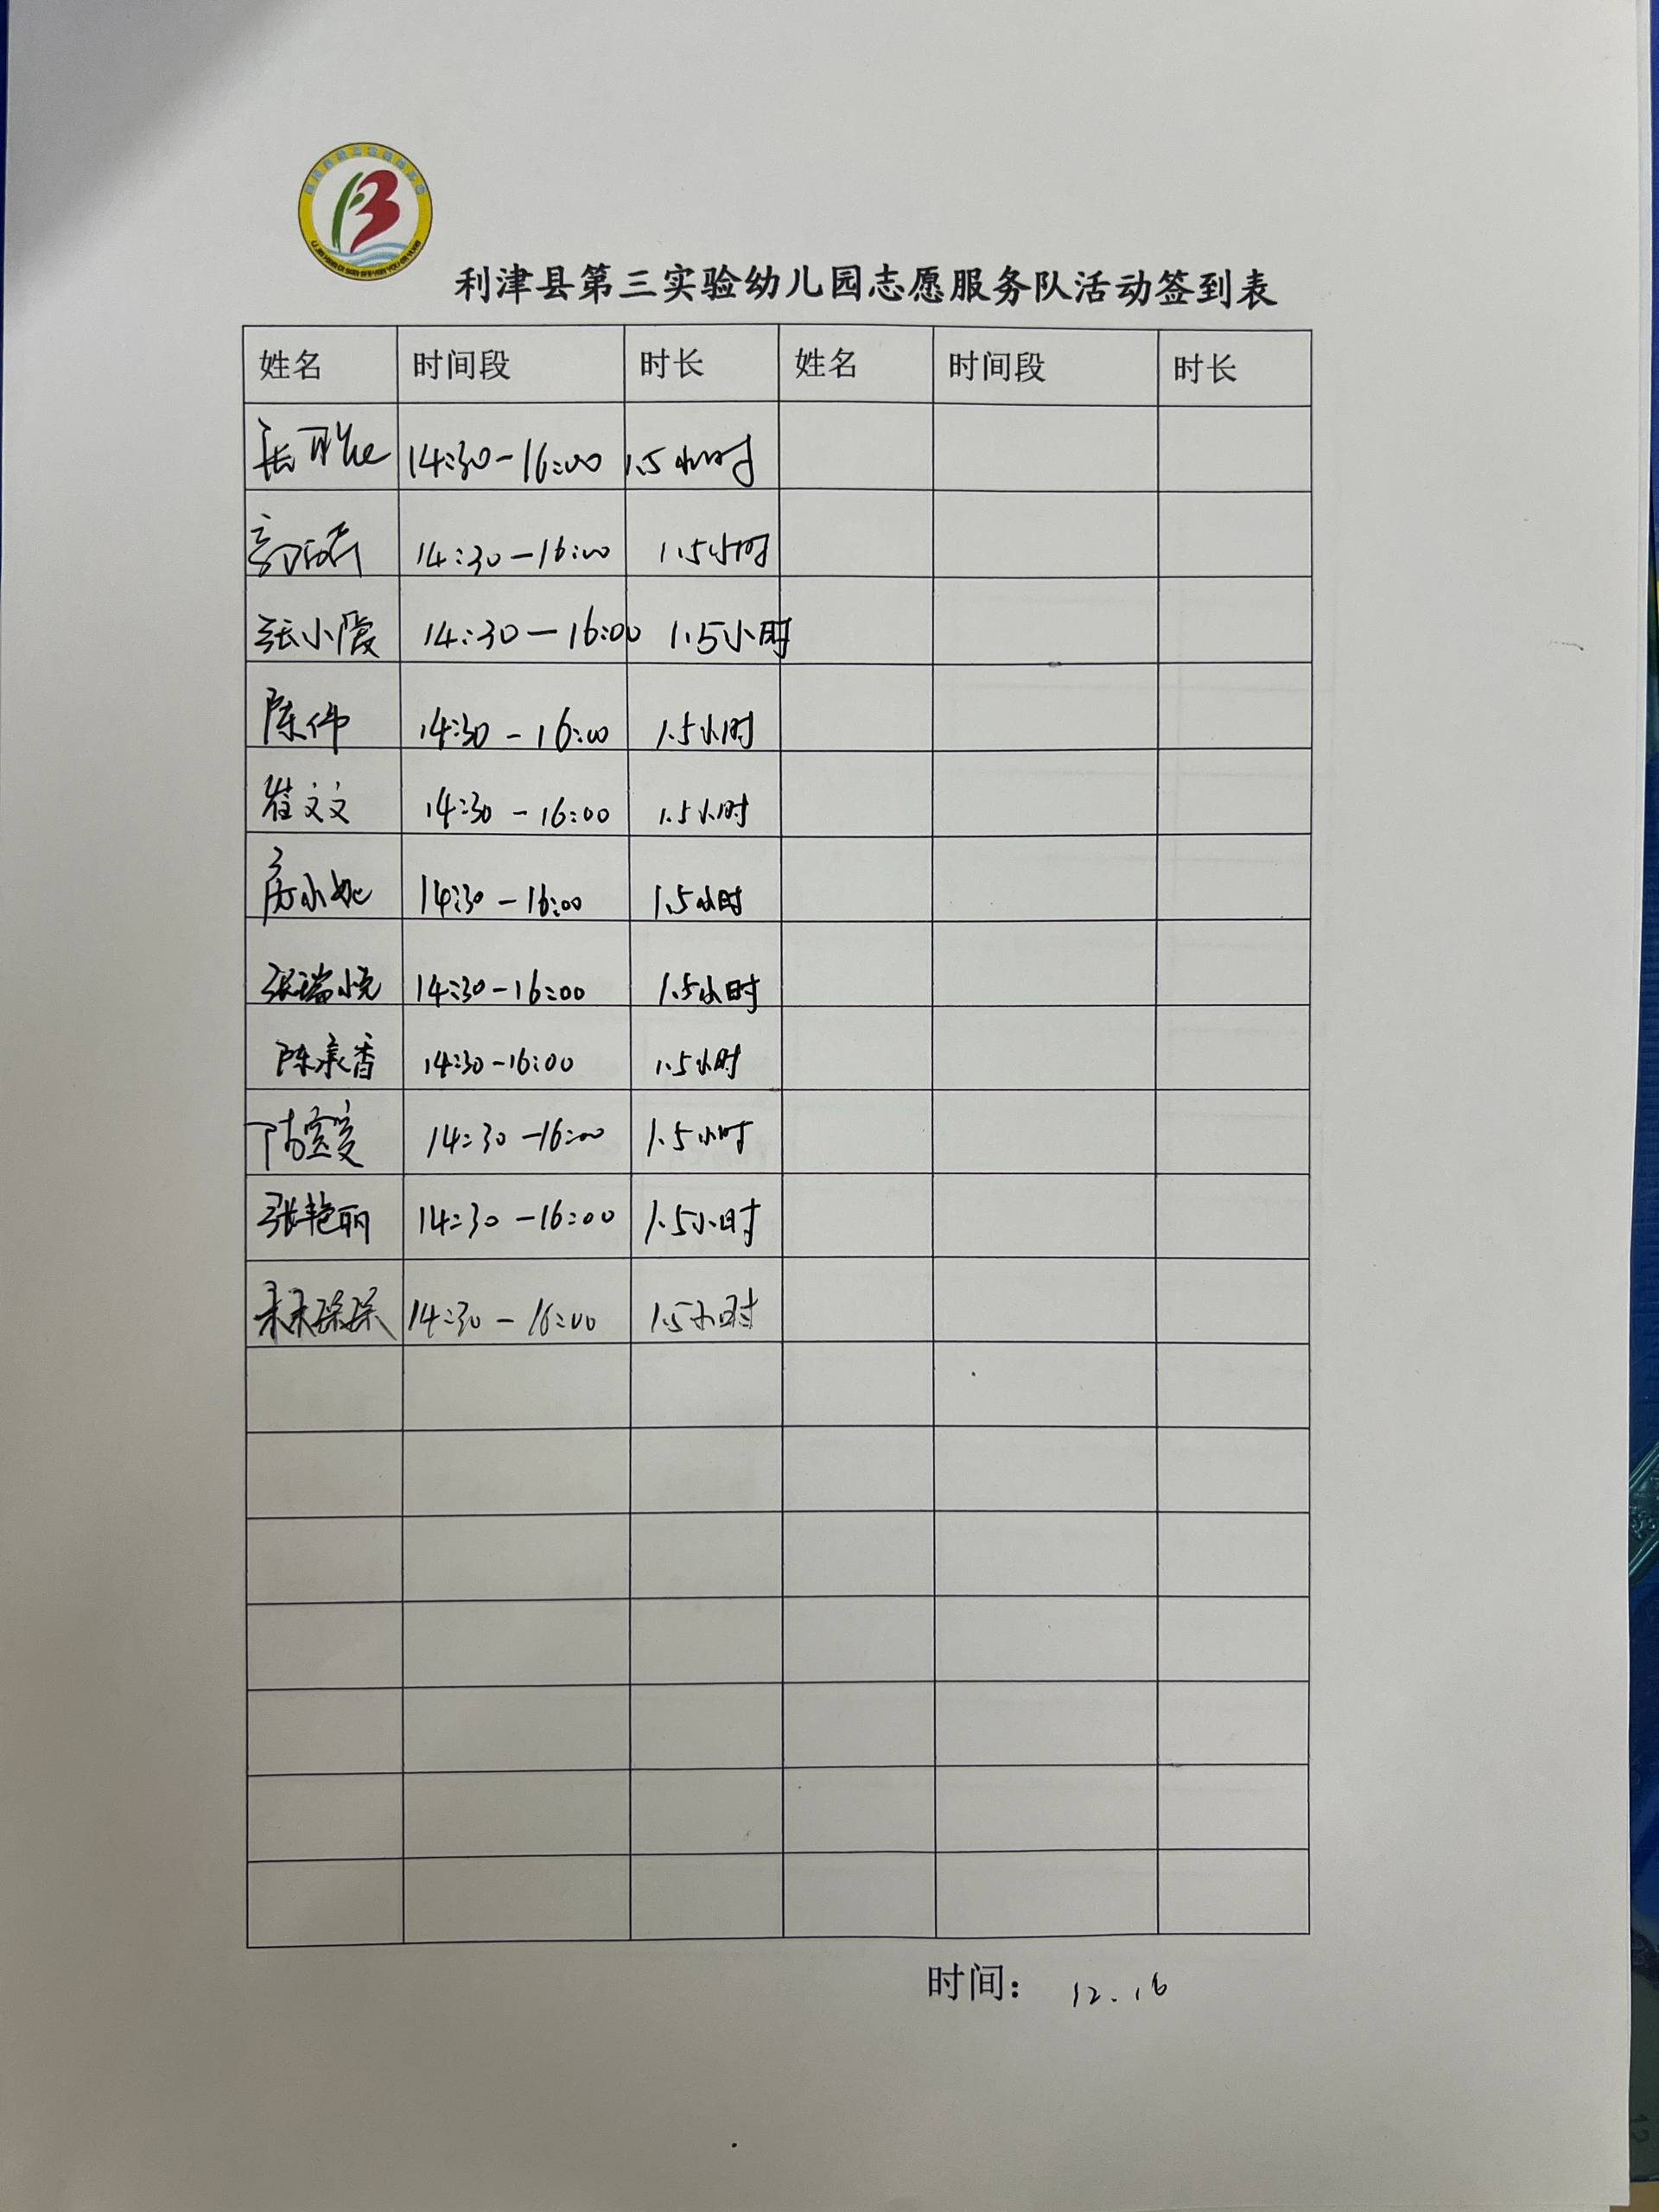 利津县第三实验幼儿园志愿服务队活动签到表
姓名 时间段 时长 姓名 时间段 时长
14:30-16:00 1.5小时
14:30-16:00 1.5小时
张小霞 14:30-16:00 1.5小时
陈伟 14:30-16:00 1.5小时
崔文文 14:30-16:00 1.5小时
房小妮 14:30-16:00 1.5小时
张瑞悦 14:30-16:00 1.5小时
陈承香 14:30-16:00 1.5小时
14:30-16:00 1.5小时
张艳丽 14:30-16:00 1.5小时
14:30-16:00 1.5小时
时间： 12.16